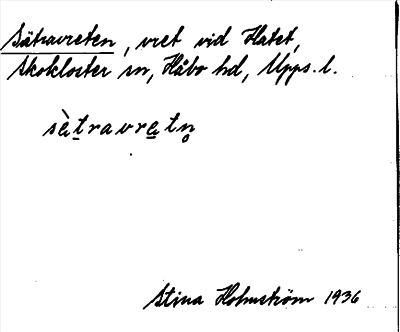 Sätravreten, vret vid Hatet,
Skokloster sn, Håbo hd, Upps. l.
sàtravretn̥
Stina Holmström 1936